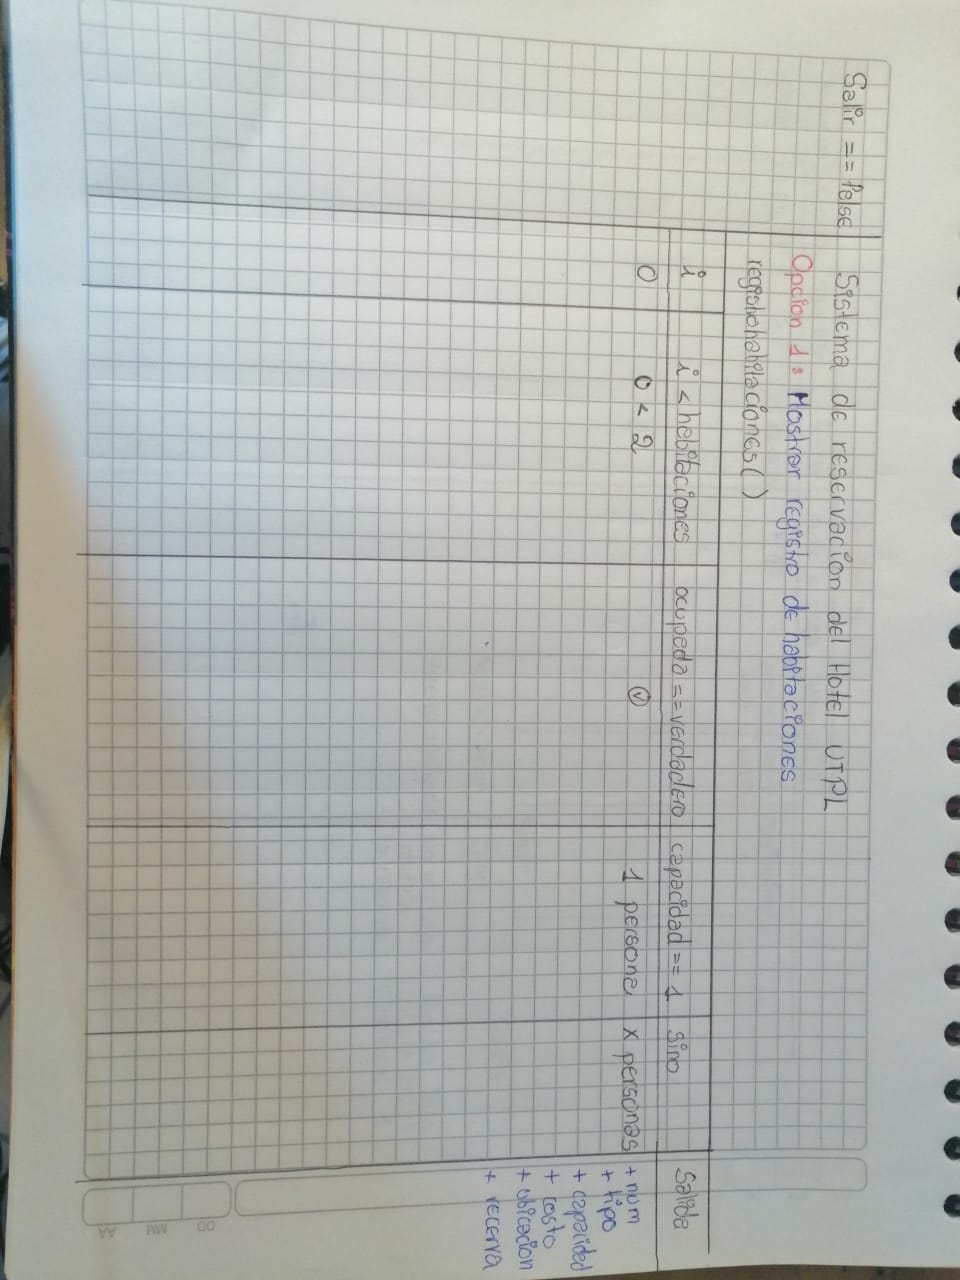 Salir == false
Sistema de reservación del Hotel UTPL
Opción 1: Mostrar registro de habitaciones
registrohabitaciones()
i
i < habitaciones
ocupada == verdadero
capacidad == 1
sino
Salida
0
0 < 2
V
1 persona
x personas
+ num
+ tipo
+ capacidad
+ costo
+ ubicacion
+ recerva
DD
MM
AA